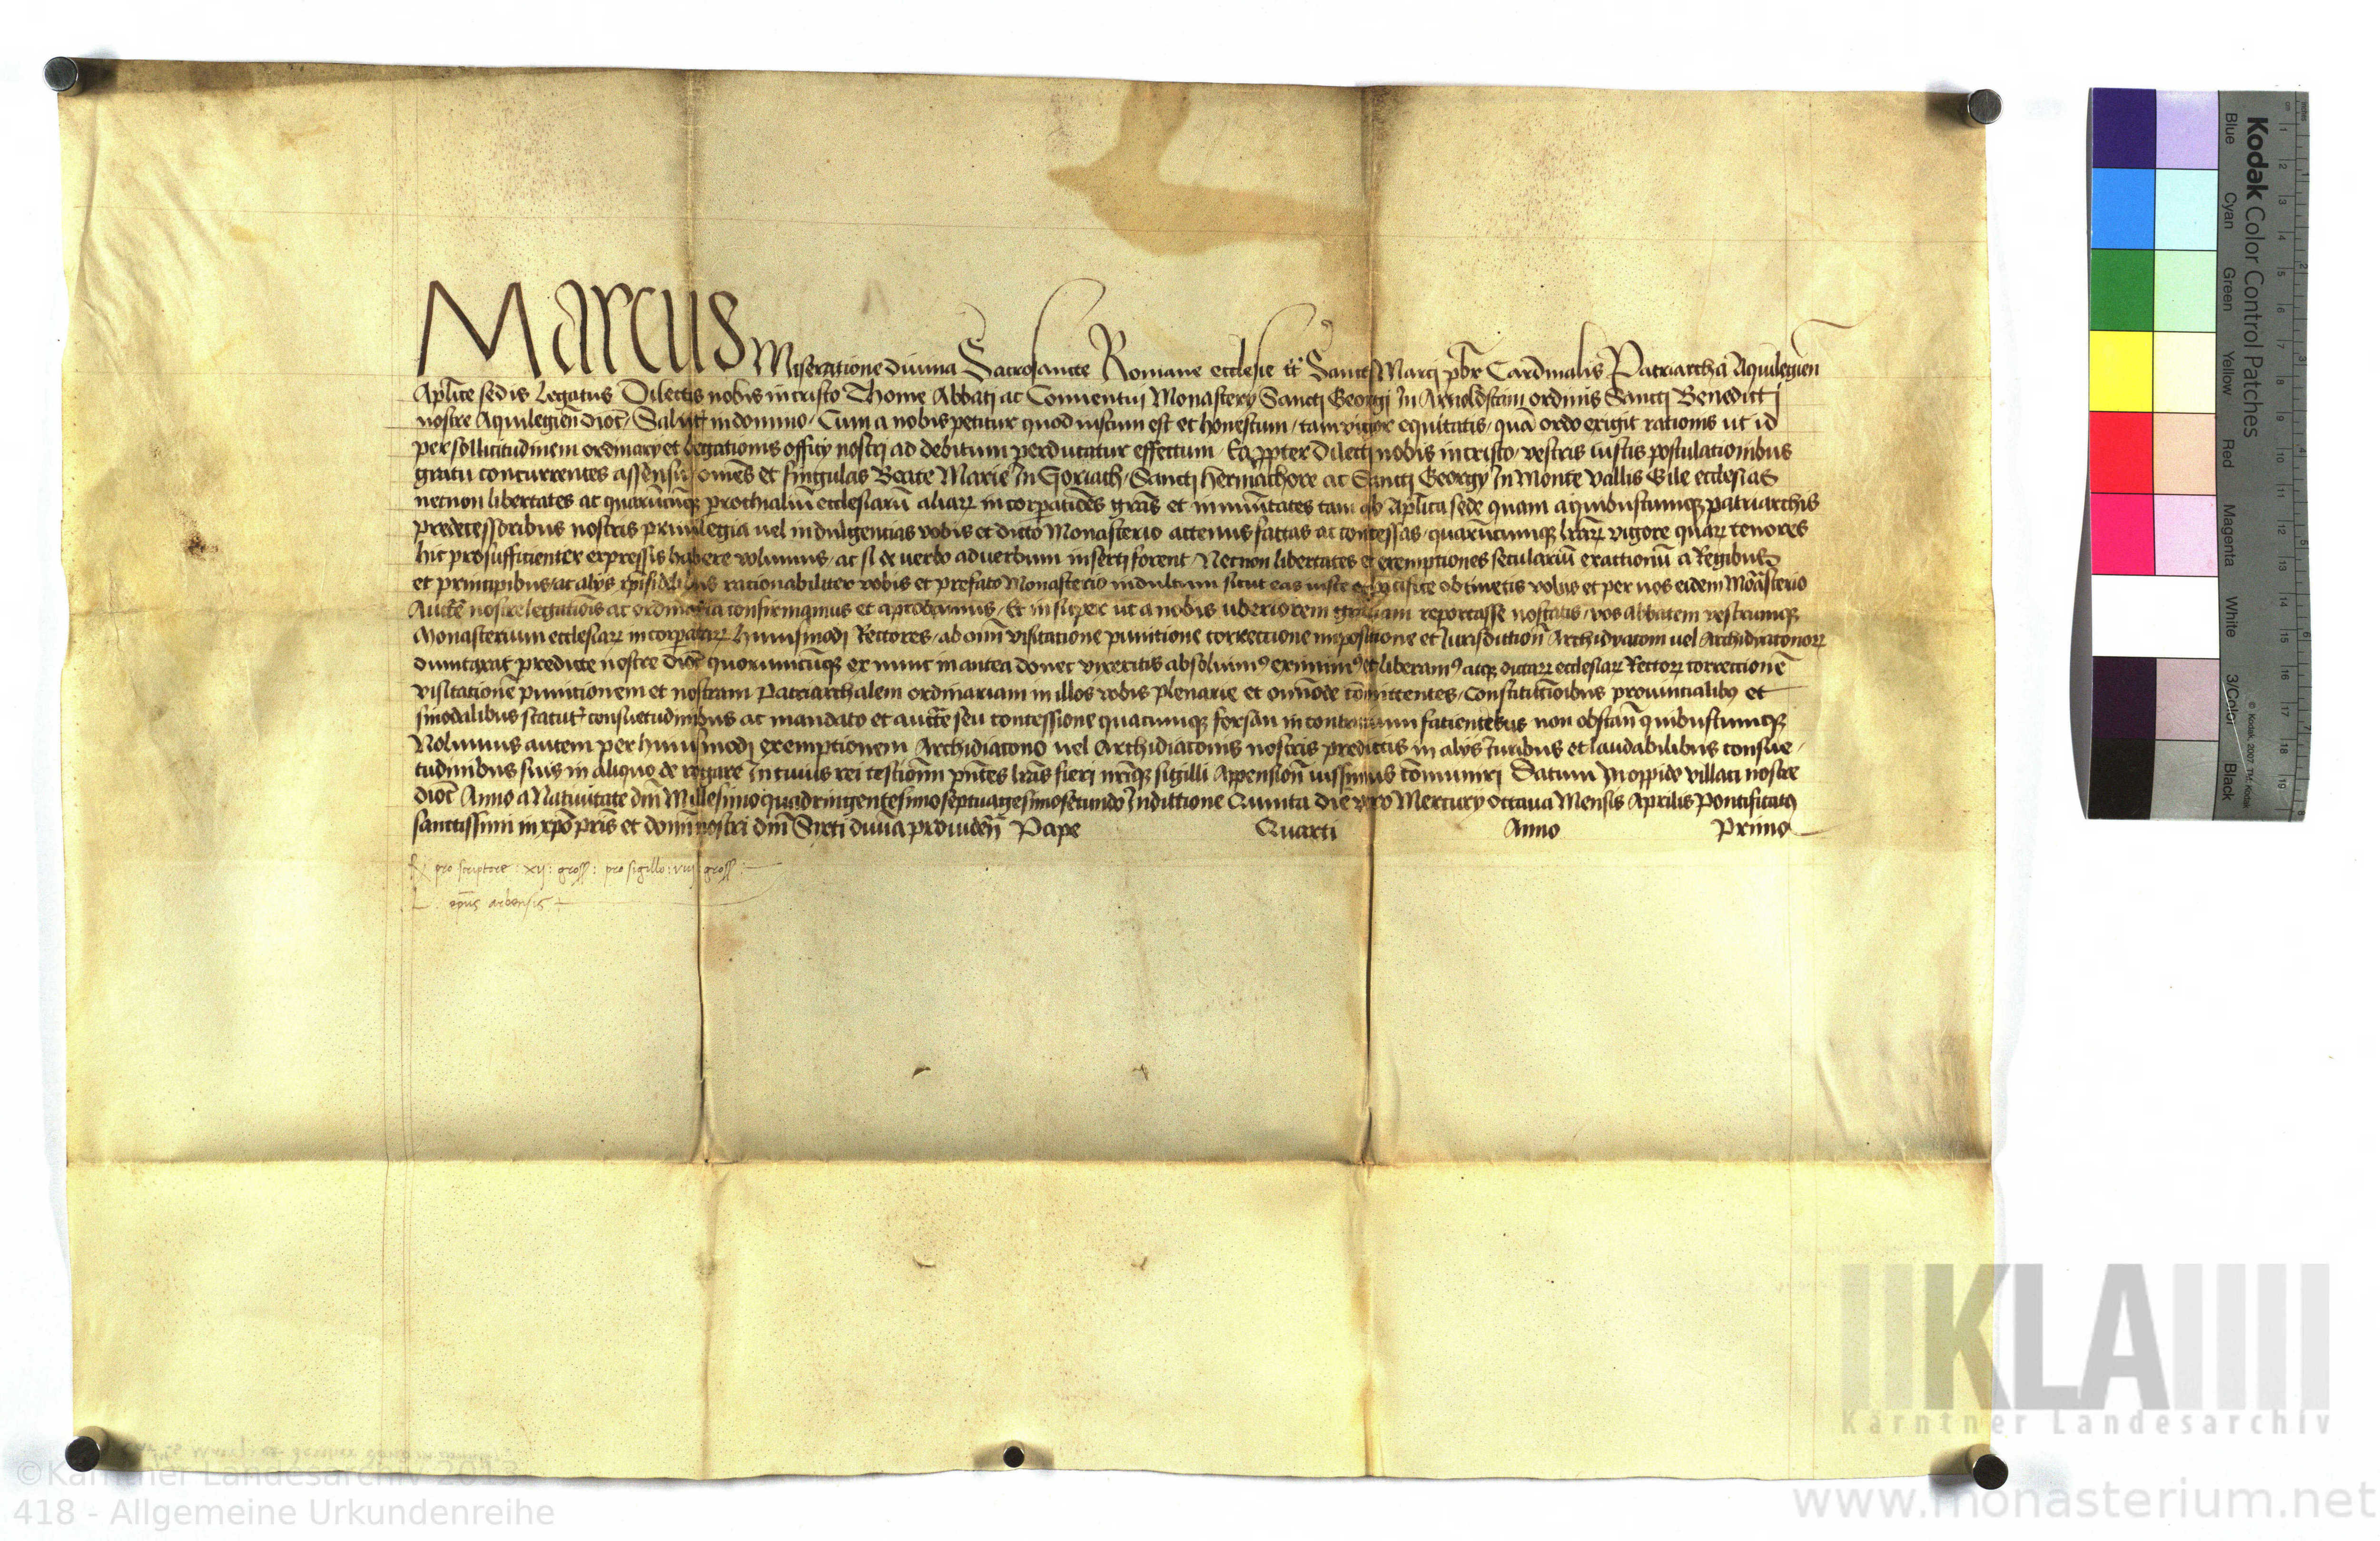 Marcus Miseratione diuina Sacrosancte Romane ecclesie tt̃ Sancti Marci pb̃r Cardinalis Patriarcha Aquilegieñ
Aplic̃e sedis Legatus Dilectis nobis in cristo Thome Abbatj ac Conuentuj Monastery Sanctj Georgj In Arnoldstain ordinis Sanctj Benedictj
nostre Aquilegieñ dioc̃ / Salut̃ in domino / Cum a nobis petitur quod iustum est et honestum / tam vigor equitatis / quã ordo exigit rationis ut id
per sollicitudinem ordinarij et legationis officij nostrj ad debitum perducatur effectum / Eapp̱ter dilectj nobis in cristo / vestris iustis postulationibus
gratu concurrentes assensu / omẽs et singulas Beate Marie In Goriach / Sanctj hermachore ac Sanctj Georgy In Monte vallis Gile ecclesias
necnon libertates ac quarũcũqꝫ parrochialiũ ecclesiarũ aliarꝝ incorꝑatiões grãs et inmunitates tam ab Aplic̃a sede quam a quibuscumqꝫ patriarchis
predecessoribus nostris priuilegia uel indulgentias vobis et dicto Monasterio actenus factas ac concessas / quarũcumqꝫ lrarꝝ vigore quarꝝ tenores
hic pro sufficienter expressis habere volumus / ac si de uerbo aduerbum insertj forent Necnon libertates et exemptiones seculariũ exactionũ a Regibus
et principibus / ac alijs xp̃ifidelibus rationabiliter vobis et prefato Monasterio indultum sicut eas iuste et pacifice obtinetis vobis et per uos eidem Monãsterio
Auctẽ nostre legatiõis ac ordinaria confirmamus et aprobamus / Et insuper ut a nobis uberiorem gratiam reportasse noscatis / vos abbatem vestrumqꝫ
Monasterium ecclesiarꝝ incorꝑatarꝝ huiusmodj Rectores / ab omĩ visitatione punitione correctione inpositione et Iurisdictioñ Archidiaconi uel Archidiaconorꝝ
dumtaxat predicte nostre dioc̃ quorumcũqꝫ ex nunc in antea donec vixeritis absoluimꝰ eximimꝰ et liberamꝰ atqꝫ dictarꝝ ecclesiarꝝ Rectorꝝ correctionẽ
visitationẽ punitionem et nostram Patriarchalem ordinariam in illos vobis plenarie et omnõde cõmittentes / Constitutiõibus prouincialibꝫ et
sinodalibus statut̃ consuetudinibus ac mandato et auctẽ seu concessione quacumqꝫ forsan in contrarium facientibus non obstañ quibuscumqꝫ
Nolumus autem per huiusmodj exemptionem Archidiacono uel Archidiaconis nostris predictis in alijs Iuribus et laudabilibus consue /
tudinibus suis in aliquo de rogare In cuius rei testionĩm pñtes lrãs fieri nr̃iqꝫ sigilli Appensioñ iussimus cõmunirj Datum In oppido villaci nostre
dioc̃ Anno a Natiuitate dnĩ Millesimoquadringentesimoseptuagesimosecundo Indictione Quinta die vero Mercurij octaua Mensis Aprilis Pontificatꝰ
sanctissimi in xp̃o pr̃is et domĩ nostri dnĩ Sixti diuina prouideñ Pape Quarti Anno Primo
R pro scriptore : xij : gross : pro sigillo : viij gross
L . ep̃us arbensis
Kodak Color Control Patches
Blue Cyan Green Yellow Red Magenta White 3/Color Black
© Kodak, 2007 TM: Kodak
KLA
Kärntner Landesarchiv
©Kärntner Landesarchiv 2013
418 - Allgemeine Urkundenreihe
www.monasterium.net